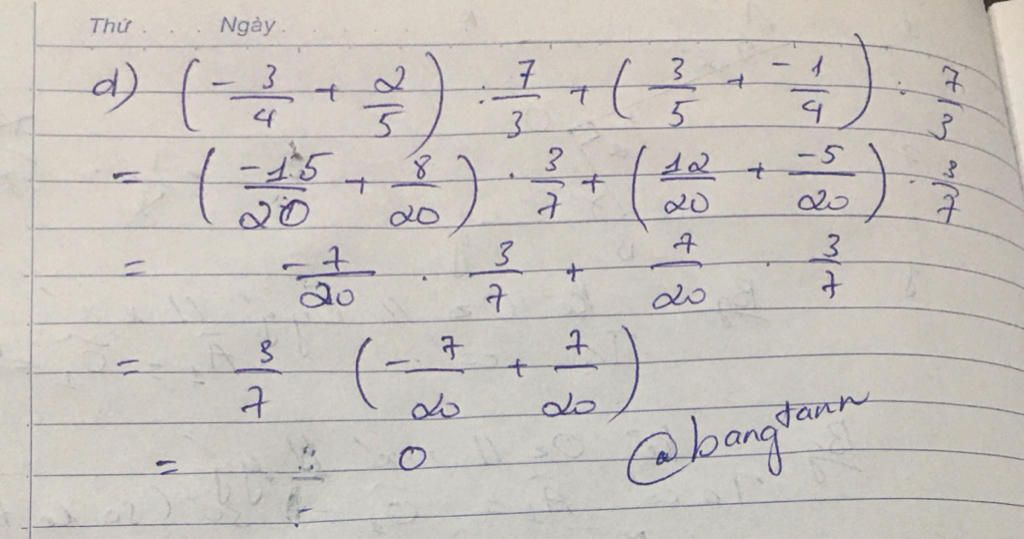 Thứ . . . Ngày .
d) (-3/4 + 2/5) : 7/3 + (3/5 + -1/4) : 7/3
= (-15/20 + 8/20) . 3/7 + (12/20 + -5/20) . 3/7
= -7/20 . 3/7 + 7/20 . 3/7
= 3/7 (-7/20 + 7/20)
= 0
@bangtann